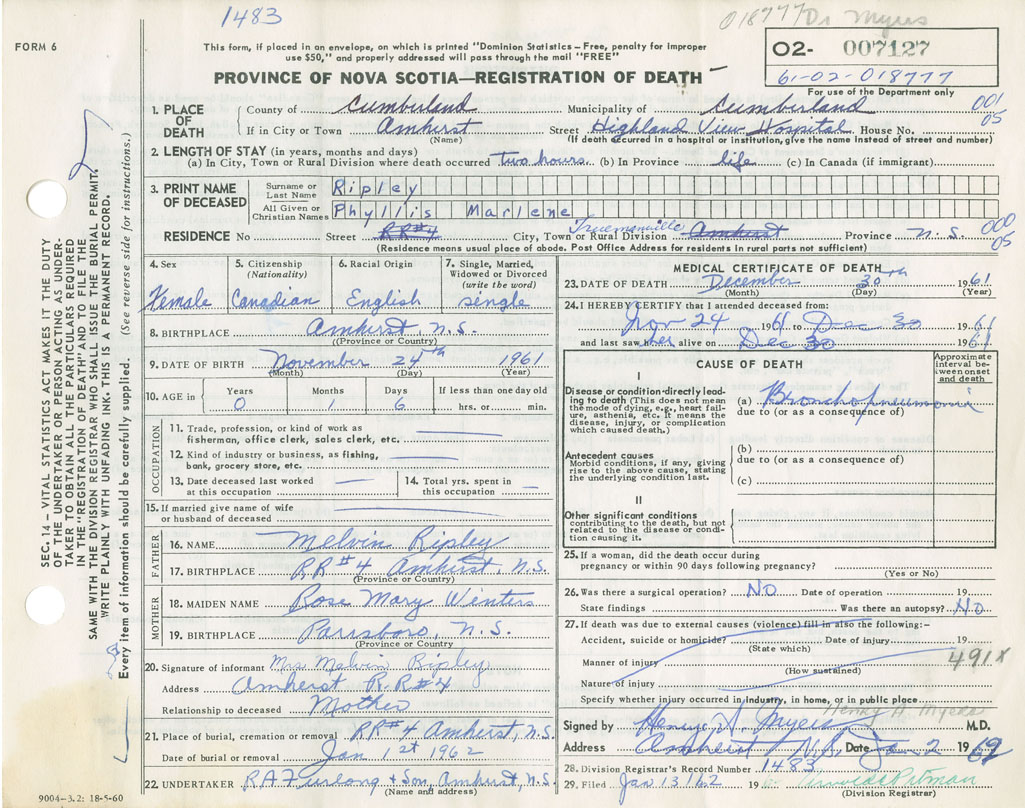 1483
018777 Dr Myers
FORM 6
This form, if placed in an envelope, on which is printed "Dominion Statistics – Free, penalty for improper
use $50," and properly addressed will pass through the mail "FREE"
02- 007127
61-02-018777
For use of the Department only
PROVINCE OF NOVA SCOTIA—REGISTRATION OF DEATH
1. PLACE OF DEATH
County of Cumberland Municipality of Cumberland 001
If in City or Town Amherst Street Highland View Hospital House No. 05
(Name) (If death occurred in a hospital or institution, give the name instead of street and number)
2. LENGTH OF STAY (in years, months and days)
(a) In City, Town or Rural Division where death occurred two hours (b) In Province life (c) In Canada (if immigrant)
3. PRINT NAME OF DECEASED
Surname or Last Name Ripley
All Given or Christian Names Phyllis Marlene
Truemanville
RESIDENCE No Street RR#4 City, Town or Rural Division Amherst Province N.S. 000 05
(Residence means usual place of abode. Post Office Address for residents in rural parts not sufficient)
4. Sex
Female
5. Citizenship
(Nationality)
Canadian
6. Racial Origin
English
7. Single, Married,
Widowed or Divorced
(write the word)
single
8. BIRTHPLACE Amherst N.S.
(Province or Country)
9. DATE OF BIRTH November 24th 1961
(Month) (Day) (Year)
10. AGE in
Years Months Days If less than one day old
0 1 6 hrs. or min.
OCCUPATION
11. Trade, profession, or kind of work as
fisherman, office clerk, sales clerk, etc.
12. Kind of industry or business, as fishing,
bank, grocery store, etc.
13. Date deceased last worked
at this occupation
14. Total yrs. spent in
this occupation
15. If married give name of wife
or husband of deceased
FATHER
16. NAME Melvin Ripley
17. BIRTHPLACE RR#4 Amherst, N.S.
(Province or Country)
MOTHER
18. MAIDEN NAME Rose Mary Winters
19. BIRTHPLACE Parrsboro, N.S.
(Province or Country)
20. Signature of informant Mrs Melvin Ripley
Address Amherst R.R#4
Relationship to deceased Mother
21. Place of burial, cremation or removal RR#4 Amherst, N.S.
Date of burial or removal Jan 1st 1962
22. UNDERTAKER R.A. Furlong & Son, Amherst, N.S.
(Name and address)
9004–3.2: 18-5-60
MEDICAL CERTIFICATE OF DEATH
23. DATE OF DEATH December 30th 1961
(Month) (Day) (Year)
24. I HEREBY CERTIFY that I attended deceased from:
Nov 24 1961 to Dec 30 1961
and last saw her alive on Dec 30 1961
CAUSE OF DEATH
Approximate
interval be-
tween onset
and death
I
Disease or condition directly lead-
ing to death (This does not mean
the mode of dying, e.g., heart fail-
ure, asthenia, etc. It means the
disease, injury, or complication
which caused death.)
(a) Bronchopneumonia
due to (or as a consequence of)
Antecedent causes
Morbid conditions, if any, giving
rise to the above cause, stating
the underlying condition last.
(b)
due to (or as a consequence of)
(c)
II
Other significant conditions
contributing to the death, but not
related to the disease or condi-
tion causing it.
25. If a woman, did the death occur during
pregnancy or within 90 days following pregnancy?
(Yes or No)
26. Was there a surgical operation? NO Date of operation 19
State findings Was there an autopsy? NO
27. If death was due to external causes (violence) fill in also the following:–
Accident, suicide or homicide? Date of injury 19
(State which)
491X
Manner of injury
(How sustained)
Nature of injury
Specify whether injury occurred in industry, in home, or in public place
Henry A. Myers
Signed by Henry A. Myers M.D.
Address Amherst N.S. Date Jan 2 1962
28. Division Registrar's Record Number 1483
29. Filed Jan 13 162 19
(Division Registrar)
SEC. 14 – VITAL STATISTICS ACT MAKES IT THE DUTY
OF THE UNDERTAKER OR PERSON ACTING AS UNDER-
TAKER TO OBTAIN ALL THE PARTICULARS REQUIRED
IN THE "REGISTRATION OF DEATH" AND TO FILE THE
SAME WITH THE DIVISION REGISTRAR WHO SHALL ISSUE THE BURIAL PERMIT.
WRITE PLAINLY WITH UNFADING INK. THIS IS A PERMANENT RECORD.
Every item of information should be carefully supplied. (See reverse side for instructions.)